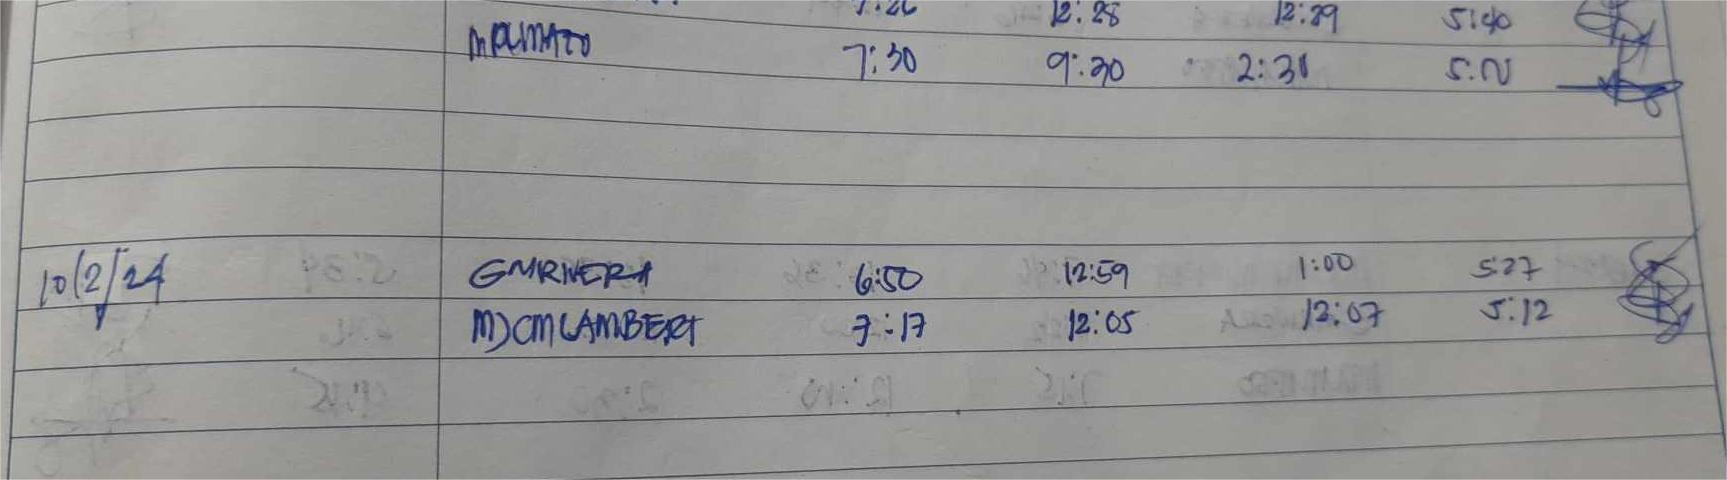 7:26 12:28 12:29 5:40
7:30 9:30 2:31
10/2/24 GMRIVERA 6:50 12:59 1:00 5:27
MJCMLAMBERT 7:17 12:05 12:07 5:12